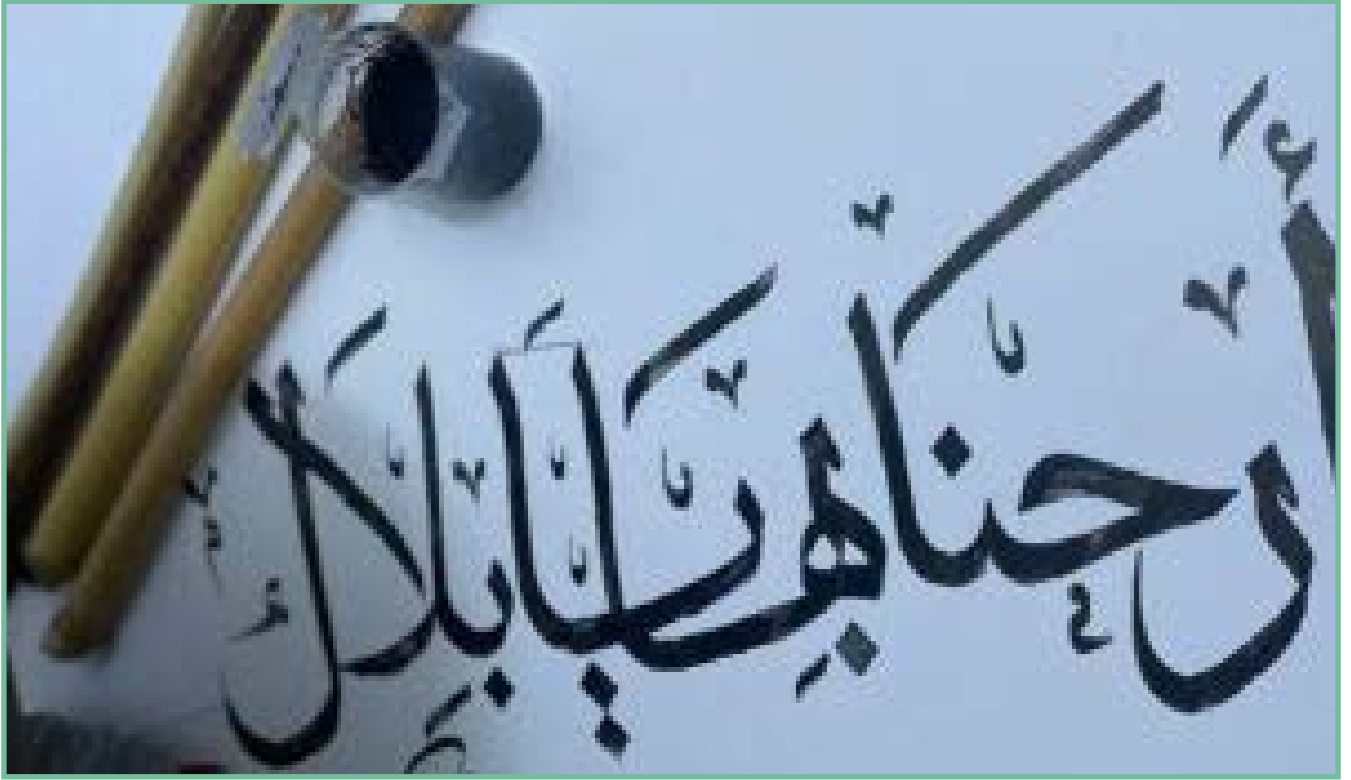 أَرِحْنَا بِهَا يَا بِلَال